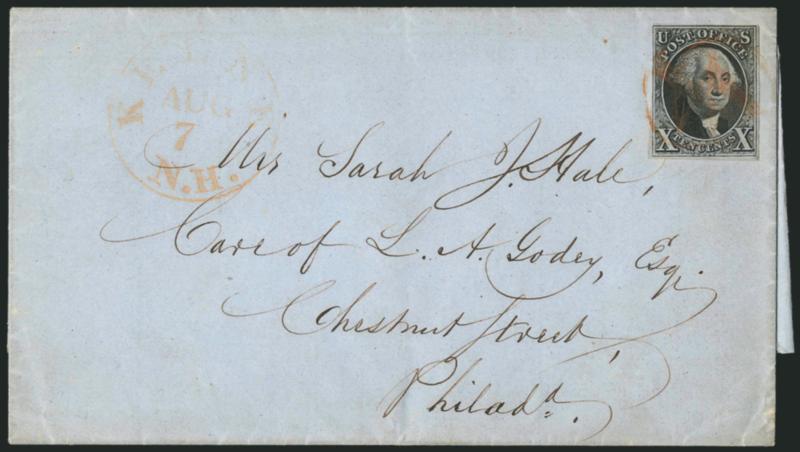 AUG
7
N.H.
U S
POST OFFICE
X TEN CENTS X
Mrs Sarah J. Hale,
Care of L. A. Godey, Esq.
Chestnut Street,
Philadᵃ.